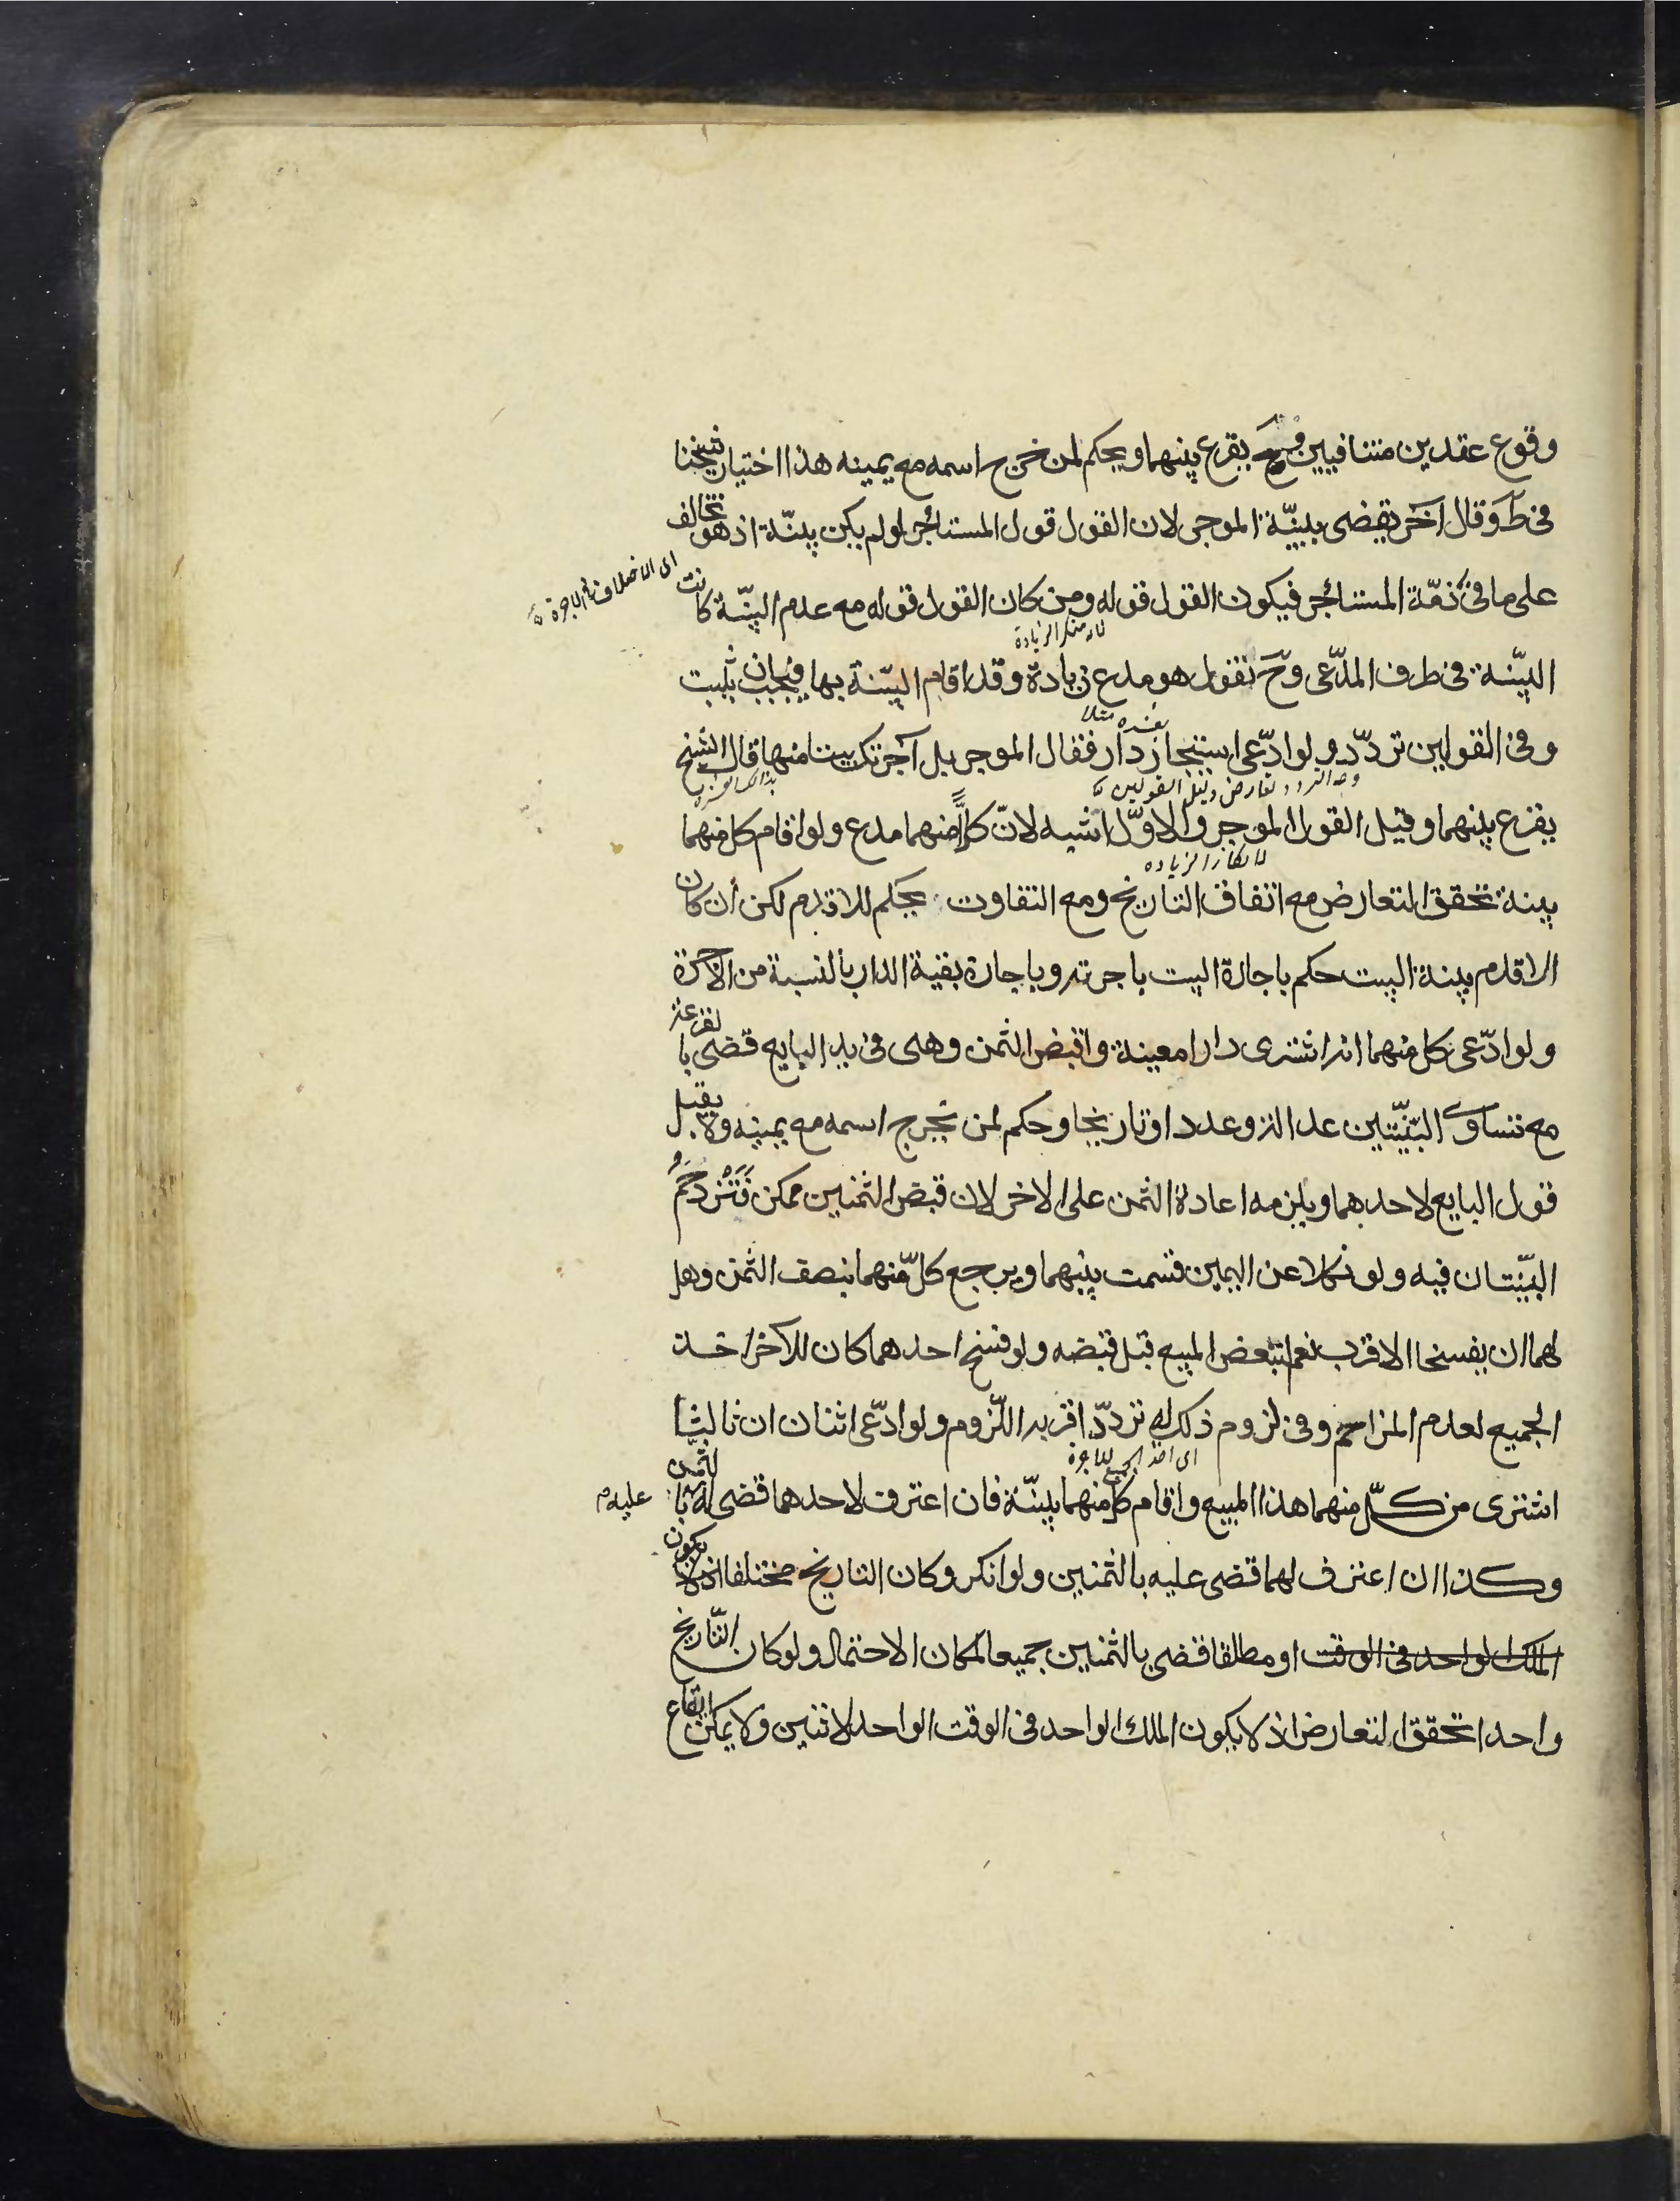 وقوع عقدين متنافيين وحّ يقرع بينهما ويحكم لمن خرج اسمه مع يمينه هذا اختيار شيخنا
فى ط وقال آخر يقضى ببينّة الموجر لان القول قول المستاجر لو لم يكن بينّة اذ هو يخالف
على ما فى ذمّة المستاجر فيكون القول قوله ومن كان القول قوله مع عدم البيّنة كانت
اى الاختلاف فى الاجرة
لانه منكر الزيادة
البيّنة فى طرف المدّعى وحّ نقول هو مدع زيادة وقد اقام البيّنة بها فيجب ان يثبت
بعشره مثلا
وفى القولين تردّد ولو ادّعى استيجار دار فقال الموجر بل آجرتك بيتا منها قال الشيخ
وجه التردد تعارض دليل القولين
يقرع بينهما وقيل القول الموجر والاوّل اشبه لانّ كلّاً منهما مدع ولو اقام كل منهما
لانكار الزياده
بينة تحقق التعارض مع اتفاق التاريخ ومع التفاوت يحكم للاقدم لكن ان كان
الاقدم بينة البيت حكم باجارة البيت باجرته وباجارة بقية الدار بالنسبة من الاجرة
ولو ادّعى كل منهما انه اشترى دارا معينة واقبض الثمن وهى فى يد البايع قضى بالقرعة
مع تساوى البيّنتين عدالة وعددا وتاريخا وحكم لمن يخرج اسمه مع يمينه ولا يقبل
قول البايع لاحدهما ويلزمه اعادة الثمن على الاخر لان قبض الثمنين ممكن فتزدحم
البيّنتان فيه ولو نكلا عن اليمين قسمت بينهما ويرجع كلّ منهما بنصف الثمن وهل
لهما ان يفسخا الاقرب نعم لتبعض المبيع قبل قبضه ولو فسخ احدهما كان للآخر اخذ
الجميع لعدم المزاحم وفى لزوم ذلك له تردّد اقربه اللّزوم ولو ادّعى اثنان ان ثالثا
اى اخذ الجميع
اشترى من كلّ منهما هذا المبيع واقام كل منهما بينّة فان اعترف لاحدهما قضى له بالثمن
عليه م
وكذا ان اعترف لهما قضى عليه بالثمنين ولو انكر وكان التاريخ مختلفا اذ لا يكون
الملك الواحد فى الوقت او مطلقا قضى بالثمنين جميعا لمكان الاحتمال ولو كان التّاريخ
واحدا تحقق التعارض اذ لا يكون الملك الواحد فى الوقت الواحد لاثنين ولا يمكن ايقاع